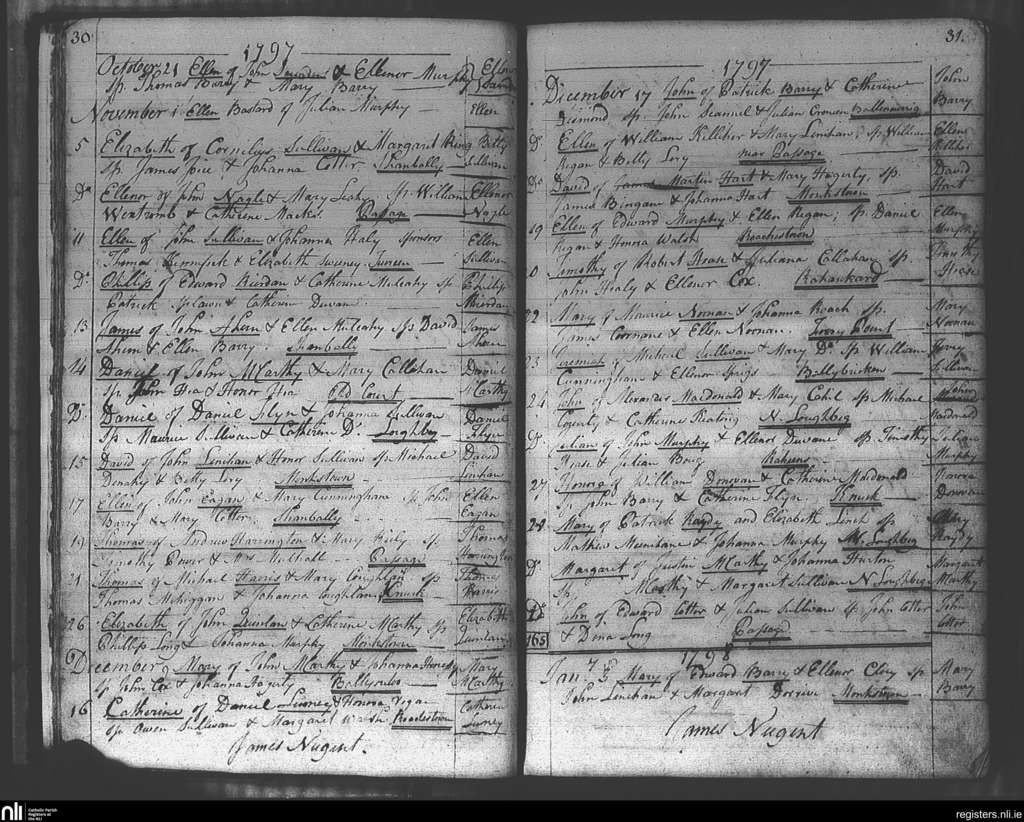 30
1797
October 21 Ellen of John & Ellenor Murphy Ellen
sp. Thomas Barry & Mary Barry
November 1 Ellen Bastard of Julian Murphy Ellen
5 Elizabeth of Cornelius Sullivan & Margaret Ring Betty
sp. James Joice & Johanna Cotter Shanbally Sullivan
Do Ellenor of John Nagle & Mary Leahy Sp. William Ellenor
& Catherine Passage Nagle
11 Ellen of John Sullivan & Johanna Healy sponsors Ellen
Thomas Kinnifick & Elizabeth Sweeney Sullivan
Do Phillip of Edward Rierdan & Catherine Mulcahy sp Philip
Patrick & Catherine Duvane Rierdan
13 James of John Ahern & Ellen Mulcahy sp David James
Ahern & Ellen Barry Shanbally Ahern
14 Daniel of John McCarthy & Mary Callahan Daniel
sp & Honor Old Court McCarthy
Do Daniel of Daniel Flyn & Johanna Sullivan Daniel
Sp Maurice Sullivan & Catherine Do Loughbeg Flyn
15 David of John Lenihan & Honor Sullivan sp Michael David
Denahy & Betty Lory Monkstown Linihan
17 Ellen of John Eagan & Mary Cunningham sp John Ellen
Barry & Mary Cotter Shanbally Eagan
19 Thomas of Andrew Harrington & Mary sp Thomas
Timothy Power & Mrs Passage Harrington
21 Thomas of Michael Harris & Mary Coughlan sp Thomas
Thomas & Johanna Coughlan Knuck Harris
26 Elizabeth of John Quinlan & Catherine McCarthy sp Elizabeth
Phillip Long & Johanna Murphy Monkstown Quinlan
December Mary of John McCarthy & Johanna Mary
sp John Cox & Johanna Hagerty McCarthy
16 Catherine of Daniel & Honora Regan Catherine
sp Owen Sullivan & Margaret Walsh Roachestown
James Nugent.
31.
1797
December 17 John of Patrick Barry & Catherine John
sp. John Scannel & Julian Cronen Barry
Do Ellen of William Killiher & Mary Linihan; sp. William Ellen
Regan & Betty Lory near Passage Killiher
Do David of James Martin Hart & Mary Hagerty, sp. David
James & Johanna Hart Monkstown Hart
19 Ellen of Edward Murphy & Ellen Regan; sp Daniel Ellen
Regan & Honora Walsh Roachestown Murphy
Timothy of Robert & Juliana Callahan sp. Timothy
John Healy & Ellenor Cox. Rahankard
22 Mary of Maurice Noonan & Johanna Roach sp. Mary
James & Ellen Noonan. Court Noonan
23 Jeremiah of Michael Sullivan & Mary Do Sp William
Cunningham & Ellenor Ballybricken Sullivan
24 John of Alexander Macdonald & Mary Cahil sp Michael John
& Catherine Keating N. Loughbeg Macdonald
Do Julian of John Murphy & Ellenor Duvane sp Timothy Julian
& Julian Raheens Murphy
27 Honora of William Donovan & Catherine McDonald Honora
sp John Barry & Catherine Flyn Knuck Donovan
28 Mary of Patrick Naydy and Elizabeth Linch sp Mary
Mathew & Johanna Murphy Loughbeg Naydy
Do Margaret of Justin McCarthy & Johanna Margaret
sp. McCarthy & Margaret Sullivan N Loughbeg McCarthy
John of Edward Cotter & Julian Sullivan sp John Cotter John
165 & Dena Long Passage Cotter
1798
Jan. Mary of Edward Barry & Ellenor sp Mary
John Lenihan & Margaret Monkstown Barry
James Nugent
nli
Catholic Parish
Registers at
the NLI
registers.nli.ie